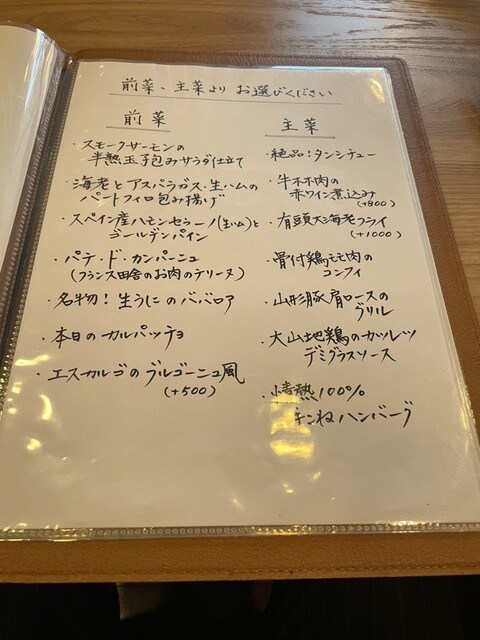 前菜、主菜より お選びください
前菜
・スモークサーモンの
半熟玉子包みサラダ仕立て
・海老とアスパラガス、生ハムの
パートフィロ包み揚げ
・スペイン産ハモンセラーノ(生ハム)と
ゴールデンパイン
・パテ・ド・カンパーニュ
(フランス田舎のお肉のテリーヌ)
・名物!生うにのババロア
・本日のカルパッチョ
・エスカルゴのブルゴーニュ風
(+500)
主菜
・絶品!タンシチュー
・牛ホホ肉の
赤ワイン煮込み
(+800)
・有頭大海老フライ
(+1000)
・骨付鶏モモ肉の
コンフィ
・山形豚肩ロースの
グリル
・大山地鶏のカツレツ
デミグラスソース
・情熱100%
手ごねハンバーグ